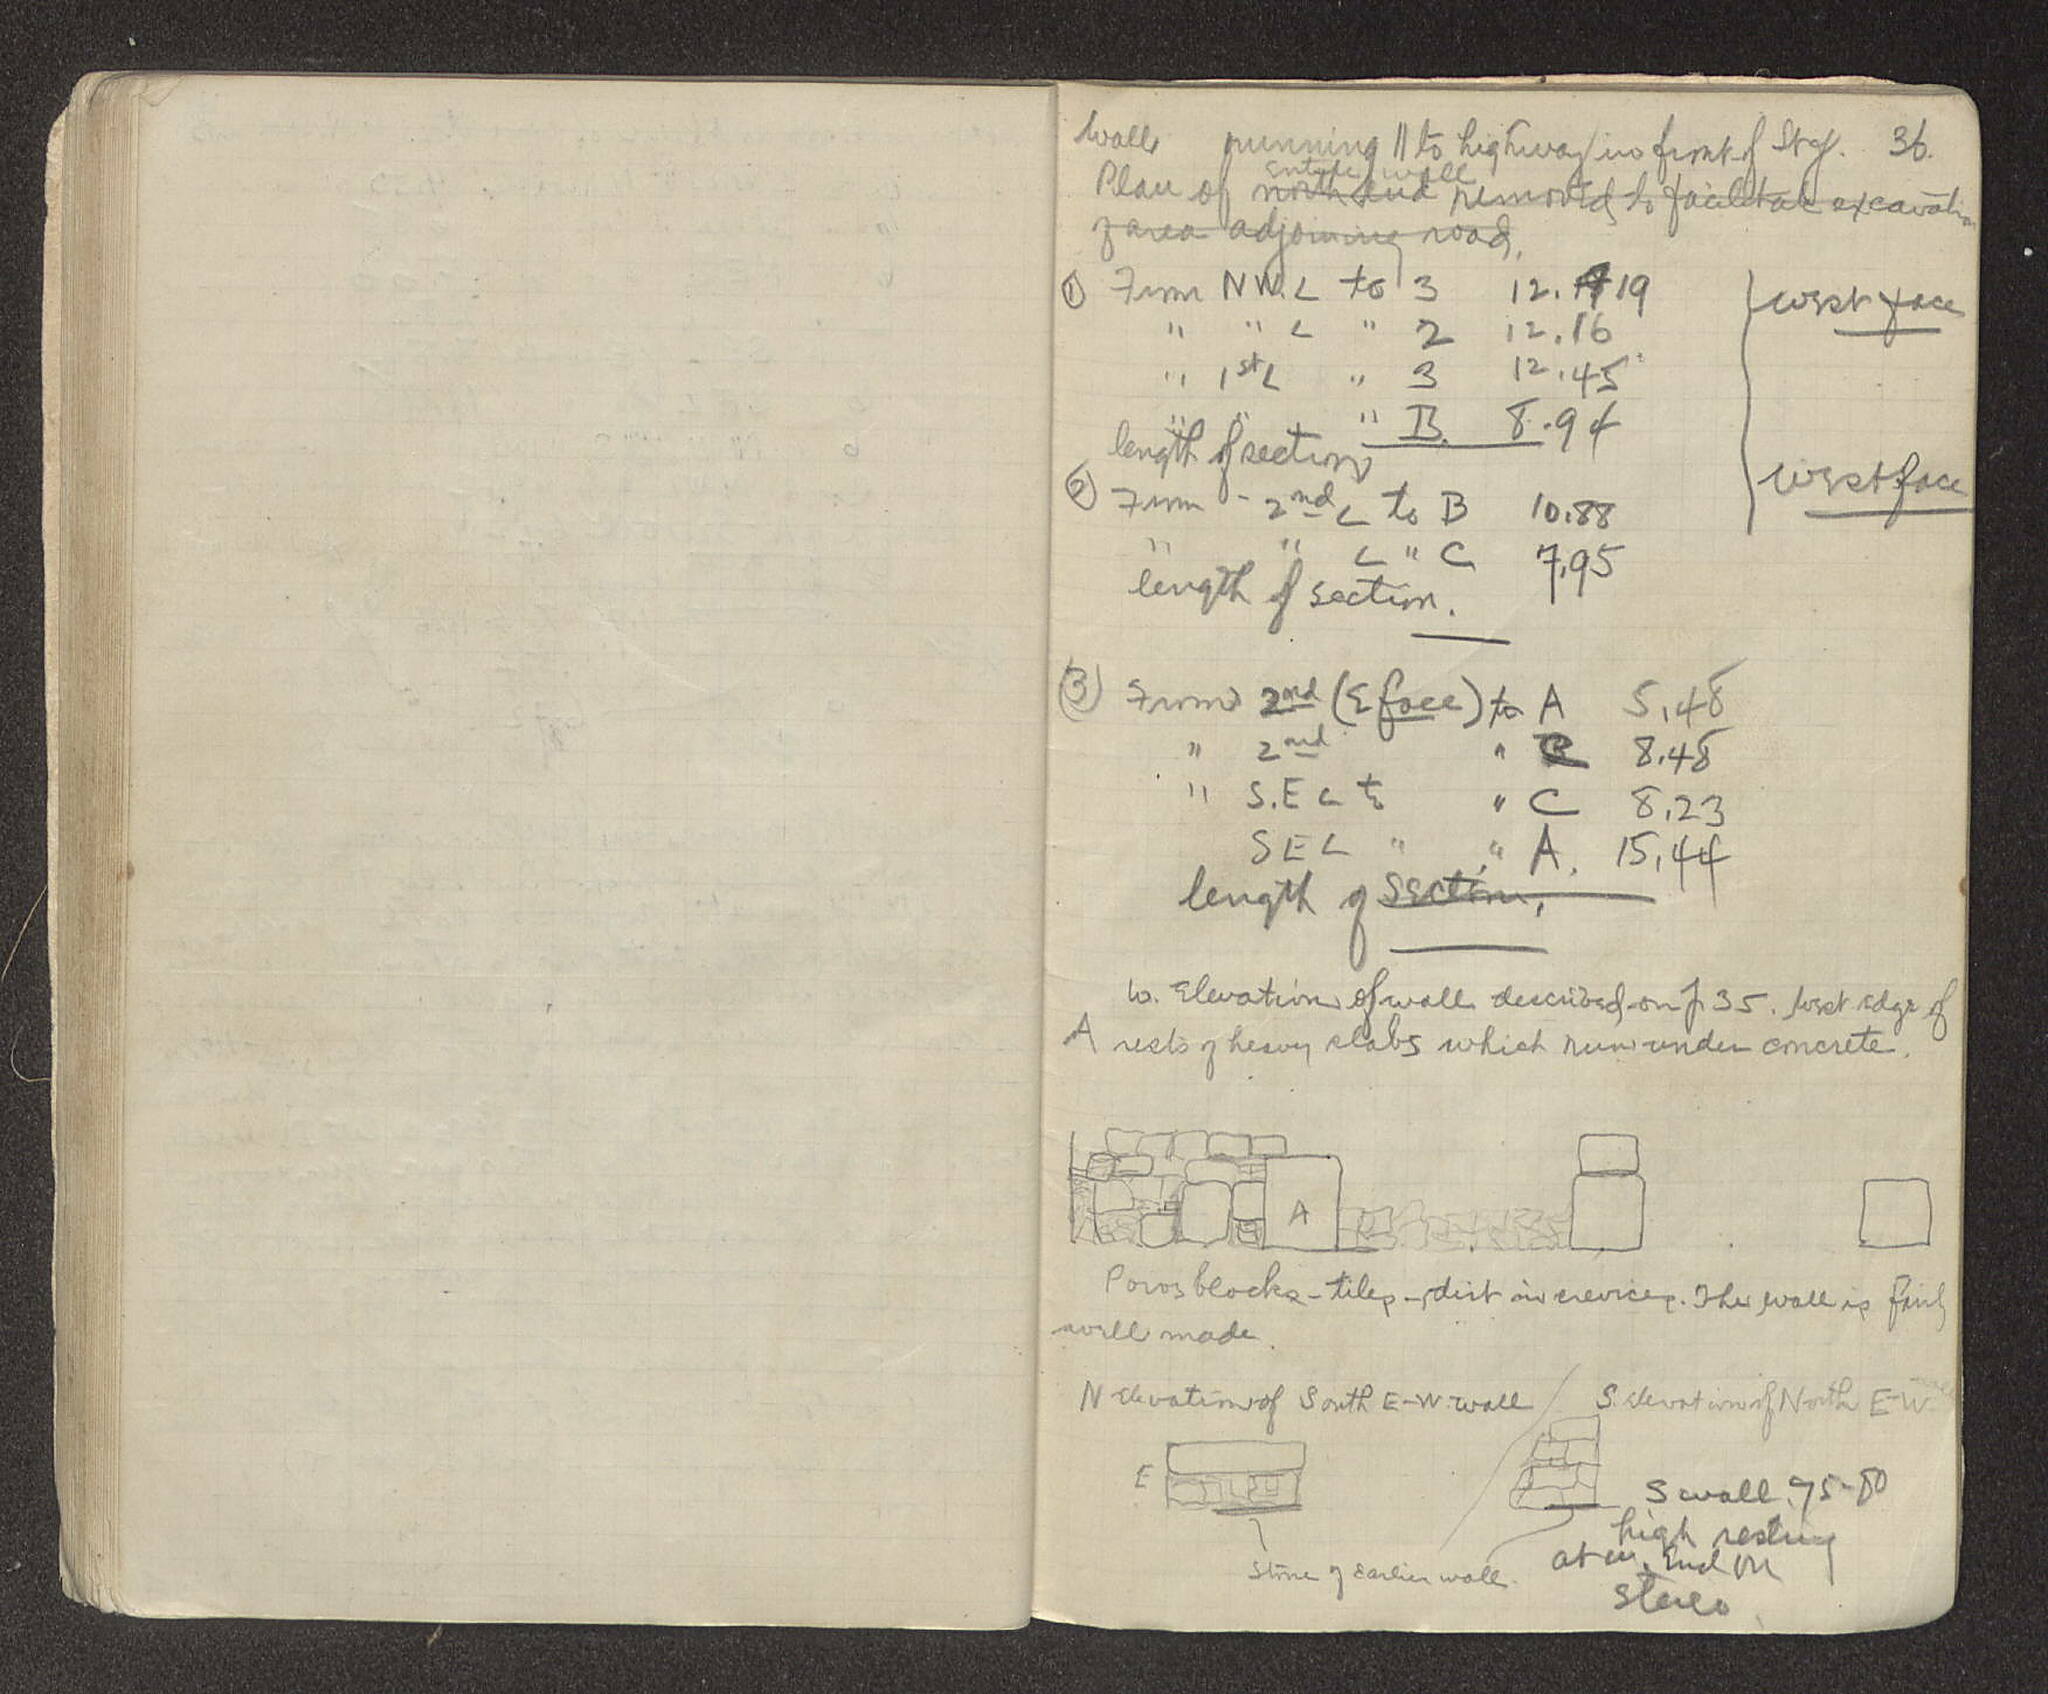 Wall running || to highway in front of Stg. 36.
entire wall
Plan of north end removed to facilitate excavation
of area adjoining road.
① From N W. L to 3 12.19
" " L " 2 12.16 west face
" 1st L " 3 12.45
" " " B. 8.94
length of section
② From - 2nd L to B 10.88 west face
" " L " C 7.95
length of section.
③ From 2nd (E face) to A 5.48
" 2nd " 8.48
" S.E L to " C 8.23
S E L " " A. 15.44
length of section.
W. Elevation of wall described on p 35. West edge of
A rests on heavy slabs which run under concrete.
A
Poros blocks - tiles - dirt in crevices. The wall is fairly
well made.
N elevation of South E-W. wall S elevation of North E-W.
E
S wall .75-80
high resting
at w. End on
Stereo
Stone of Earlier wall.